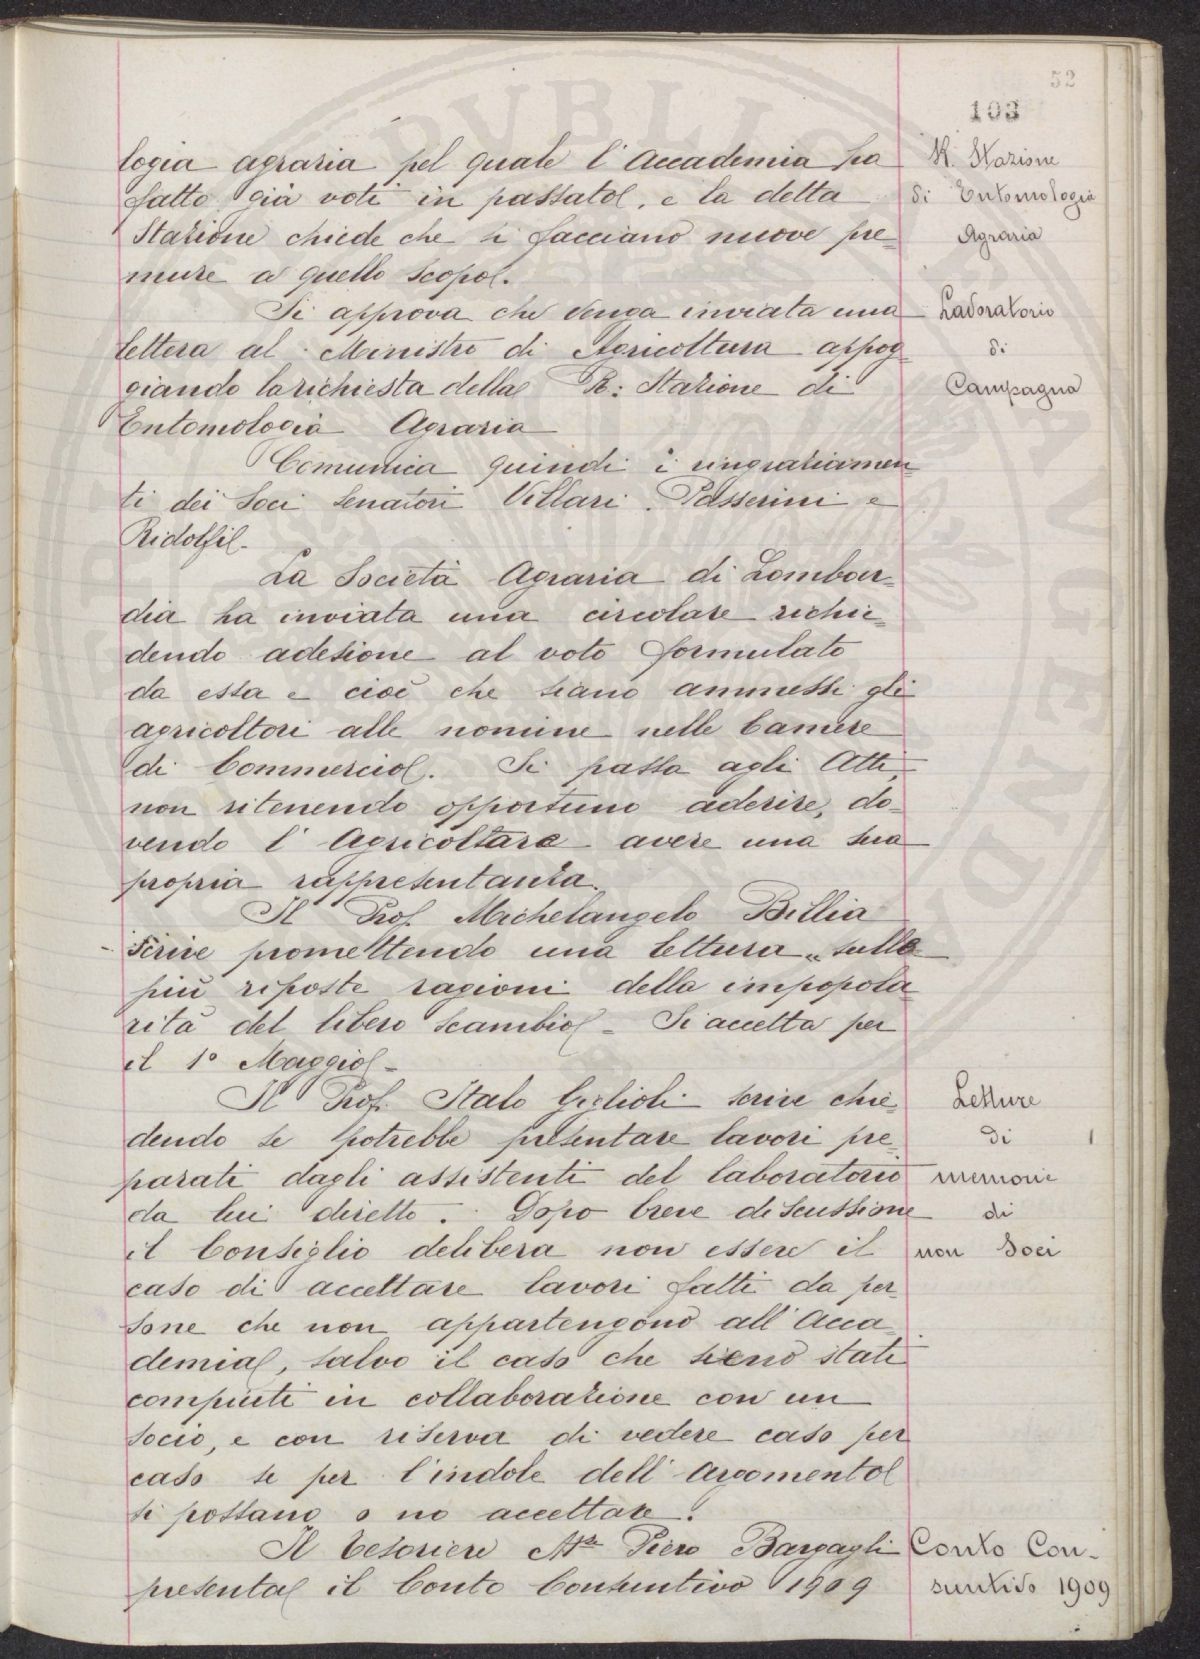 52
103
logia agraria pel quale l'Accademia ha
fatto già voti in passato, e la detta
Stazione chiede che si facciano nuove pre=
mure a quello scopo.
Si approva che venga inviata una
lettera al Ministro di Agricoltura appog=
giando la richiesta della R: Stazione di
Entomologia Agraria
Comunica quindi i ringraziamen=
ti dei Soci Senatori Villari, Passerini e
Ridolfi.
La Società Agraria di Lombar=
dia ha inviata una circolare richie=
dendo adesione al voto formulato
da essa e cioè che siano ammessi gli
agricoltori alle nomine nelle Camere
di Commercio. Si passa agli Atti,
non ritenendo opportuno aderire, do=
vendo l'Agricoltura avere una sua
propria rappresentanza.
Il Prof. Michelangelo Billia
scrive promettendo una lettura „sulle
più riposte ragioni della impopola
rità del libero scambio - Si accetta per
il 1º Maggio -
Il Prof. Italo Giglioli scrive chie=
dendo se potrebbe presentare lavori pre=
parati dagli assistenti del laboratorio
da lui diretto. Dopo breve discussione
il Consiglio delibera non essere il
caso di accettare lavori fatti da per=
sone che non appartengono all'Acca=
demia, salvo il caso che sieno stati
compiuti in collaborazione con un
socio, e con riserva di vedere caso per
caso se per l'indole dell'argomento
si possano o no accettare.
Il Tesoriere Mse Piero Bargagli
presenta il Conto Consuntivo 1909
R. Stazione
di Entomologia
Agraria
Laboratorio
di
Campagna
Letture
di
memorie
di
non Soci
Conto Con-
suntivo 1909